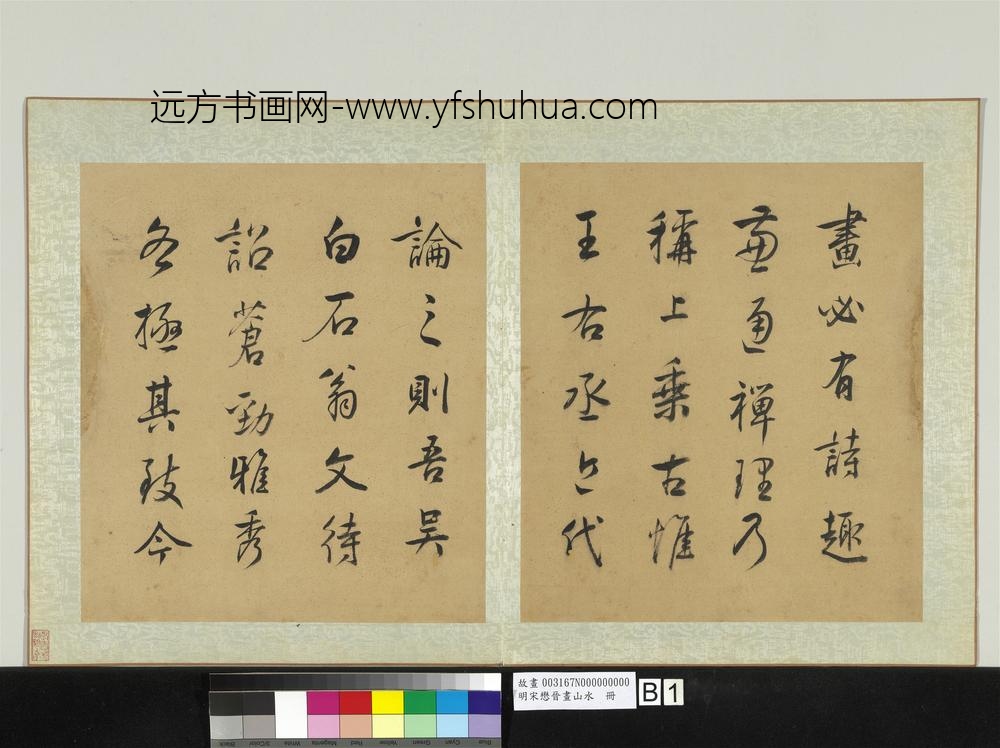 远方书画网-www.yfshuhua.com
畫必有詩趣
兼通禅理乃
稱上乗古惟
王右丞近代
論之則吾吴
白石翁文待
詔蒼勁雅秀
各極其致今
故畫 003167N000000000
明宋懋晉畫山水 冊
B1
Black
3/Color
White
Magenta
Red
Yellow
Green
Cyan
Blue